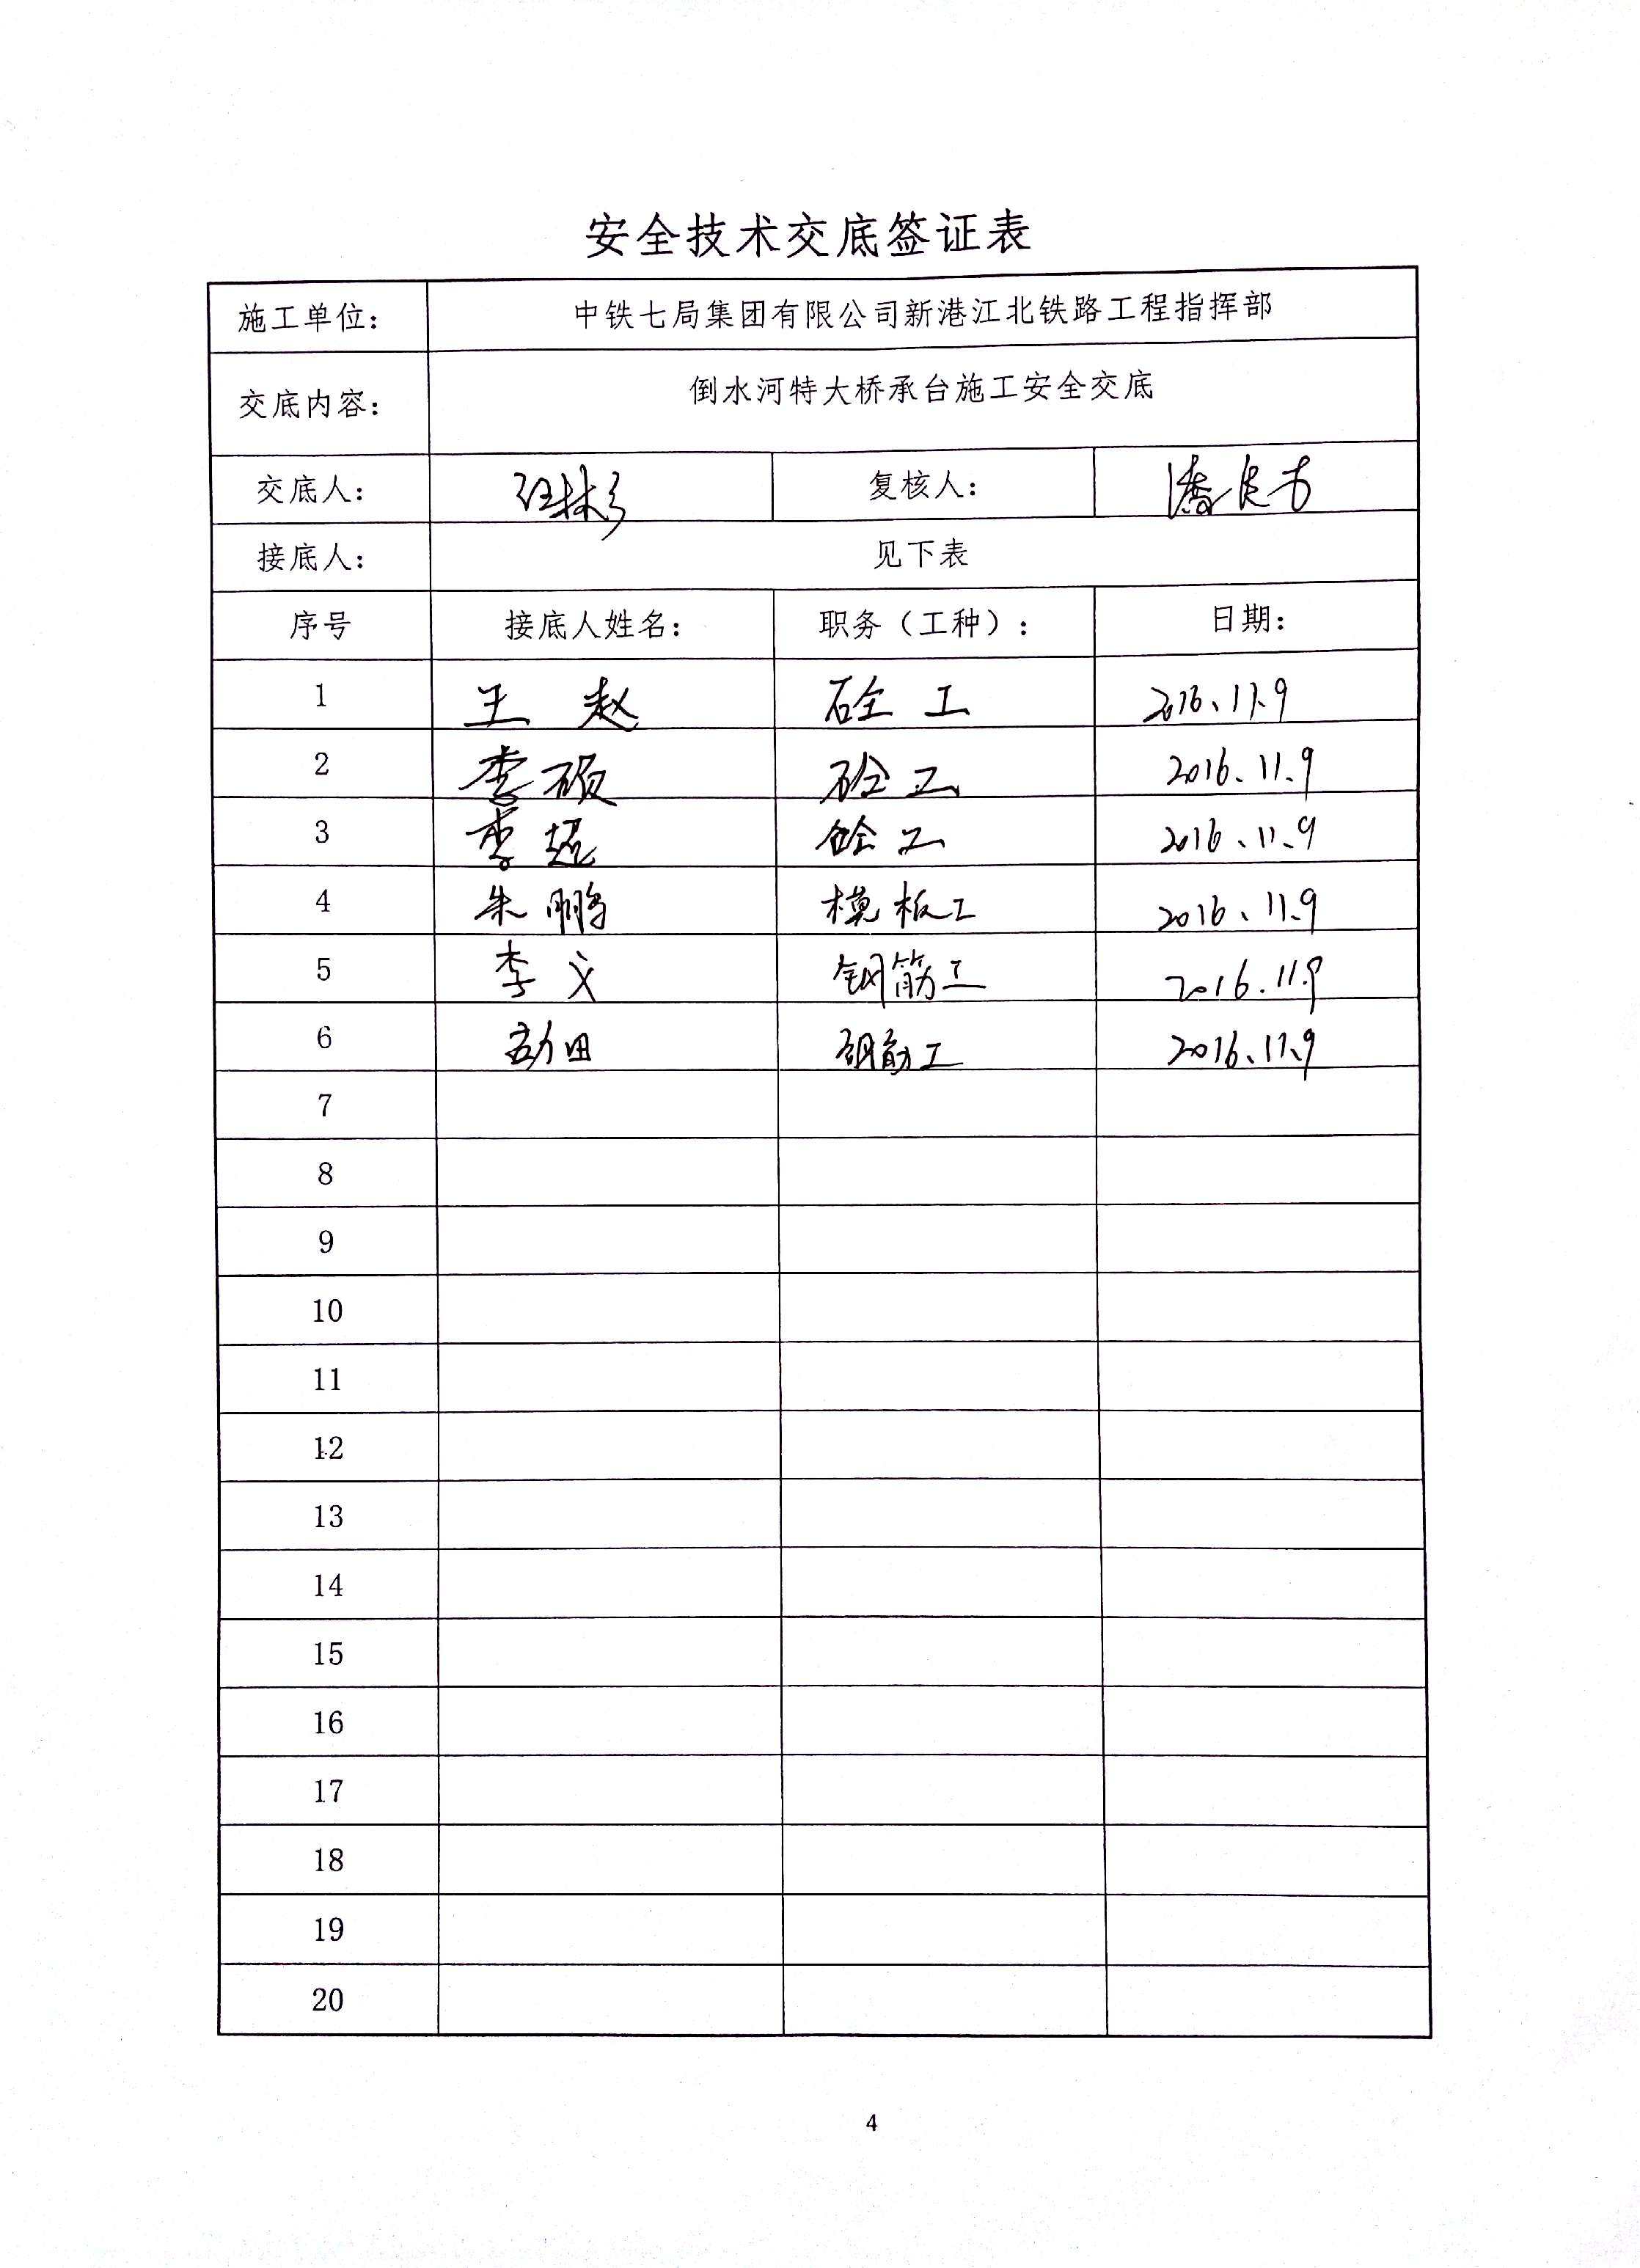 安全技术交底签证表
施工单位： 中铁七局集团有限公司新港江北铁路工程指挥部
交底内容： 倒水河特大桥承台施工安全交底
交底人： 任彬 复核人： 潘良方
接底人： 见下表
序号 接底人姓名： 职务（工种）： 日期：
1 王赵 砼工 2016、11、9
2 李硕 砼工 2016、11、9
3 李超 砼工 2016、11、9
4 朱鹏 模板工 2016、11、9
5 李文 钢筋工 2016.11.9
6 田 钢筋工 2016、11、9
7
8
9
10
11
12
13
14
15
16
17
18
19
20
4